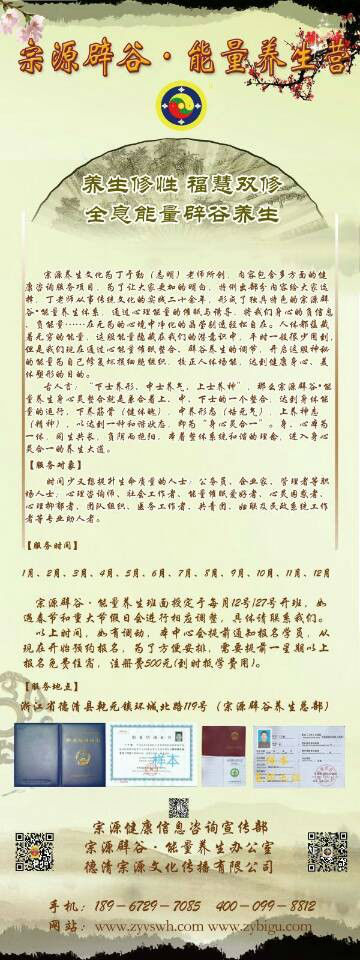 宗源辟谷·能量养生营
养生修性 福慧双修
全息能量辟谷养生
宗源养生文化为丁子勤（志明）老师所创，内容包含多方面的健
康咨询服务项目，为了让大家更加的明白，特例出部分内容给大家选
择，丁老师从事传统文化的实践二十余年，形成了独具特色的宗源辟
谷·能量养生体系，通过心理能量的催眠与诱导，将我们身心的负信息
、负能量……在无为的心境中净化的晶莹剔透轻松自在。人体都蕴藏
着无穷的能量，这股能量隐藏在我们的潜意识中，平时一般很少用到，
但是我们现在通过心能量催眠整合、辟谷养生的调节，开启这股神秘
的能量为自己修复和摆细胞组织，校正人体传能，达到健康身心、美
体塑形的目的。
古人言：“下士养形，中士养气，上士养神”，那么宗源辟谷·能
量养生身心灵整合就是兼合着上、中、下士的一个整合，达到身体能
量的运行，下养筋骨（健体魄），中养形态（培元气），上养神态
（精神），以达到一种和谐状态，即为“身心灵合一”。身、心本为
一体，同生共长，负阴而抱阳，本着整体系统和谐的理念，进入身心
灵合一的养生大道。
【服务对象】
时间少又想提升生命质量的人士：公务员、企业家、管理者等职
场人士；心理咨询师、社会工作者、能量催眠爱好者、心灵困惑者、
心理抑郁者、团队组织、医务工作者、共青团、妇联及民政系统工作
者等专业助人者。
【服务时间】
1月、2月、3月、4月、5月、6月、7月、8月、9月、10月、11月、12月
宗源辟谷·能量养生班面授定于每月12号/27号开班，如
遇春节和重大节假日会进行相应调整，具体请联系我们。
以上时间，如有调动，本中心会提前通知报名学员，从
现在开始预约报名，为了方便安排，需要提前一星期以上
报名免费住宿，注册费500元(到时抵学费用)。
【服务地点】
浙江省德清县乾元镇环城北路119号（宗源辟谷养生总部）
样本
宗源健康信息咨询宣传部
宗源辟谷·能量养生办公室
德清宗源文化传播有限公司
手机：189-6729-7085 400-099-8812
网站：www.zyyswh.com www.zybigu.com